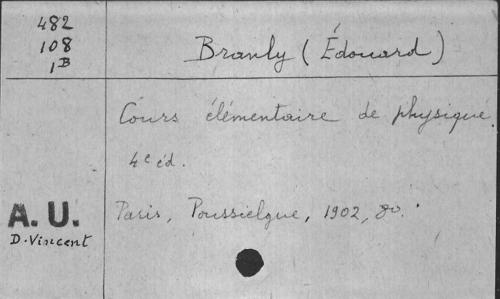 482
108
1B
Branly (Édouard)
Cours élémentaire de physique.
4e éd.
Paris, Poussielgue, 1902, 8o.
A. U.
D. Vincent